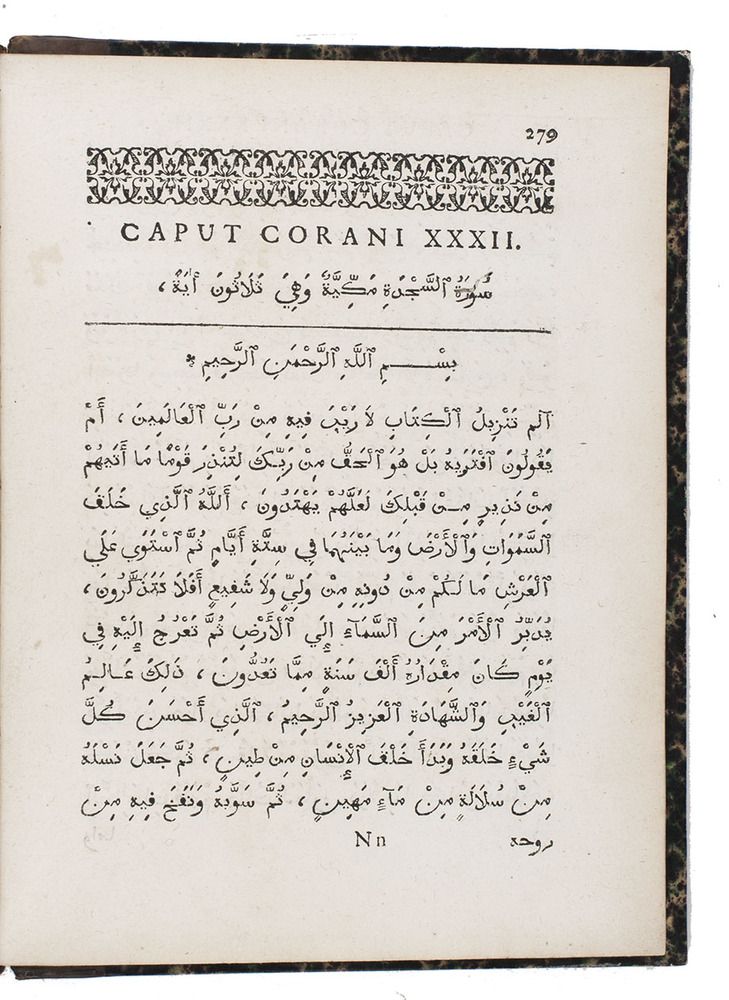 279
CAPUT CORANI XXXII.
سُورَةُ ٱلسَّجْدَةِ مَكِّيَّةٌ وَهِيَ ثَلَاثُونَ أٰيَةً ،
بِسْــــمِ ٱللَّهِ ٱلرَّحْمَنِ ٱلرَّحِيمِ *
آلم تَنْزِيلُ ٱلْكِتَابِ لَا رَيْبَ فِيهِ مِنْ رَبِّ ٱلْعَالَمِينَ ، أَمْ
يَقُولُونَ ٱفْتَرَيهُ بَلْ هُوَ ٱلْحَقُّ مِنْ رَبِّكَ لِتُنْذِرَ قَوْمًا مَا أَتَيهُمْ
مِنْ نَذِيرٍ مِنْ قَبْلِكَ لَعَلَّهُمْ يَهْتَدُونَ ، أَللَّهُ ٱلَّذِي خَلَقَ
ٱلسَّمَوَاتِ وَٱلْأَرْضَ وَمَا بَيْنَهُمَا فِي سِتَّةِ أَيَّامٍ ثُمَّ ٱسْتَوَي عَلَي
ٱلْعَرْشِ مَا لَكُمْ مِنْ دُونِهِ مِنْ وَلِيٍّ وَلَا شَفِيعٍ أَفَلَا تَتَذَكَّرُونَ ،
يُدَبِّرُ ٱلْأَمْرَ مِنَ ٱلسَّمَآءِ إِلَي ٱلْأَرْضِ ثُمَّ تَعْرُجُ إِلَيْهِ فِي
يَوْمٍ كَانَ مِقْدَارُهُ أَلْفَ سَنَةٍ مِمَّا تَعُدُّونَ ، ذَلِكَ عَالِمُ
ٱلْغَيْبِ وَٱلشَّهَادَةِ ٱلْعَزِيزُ ٱلرَّحِيمُ ، ٱلَّذِي أَحْسَنَ كُلَّ
شَيْءٍ خَلَقَهُ وَبَدَأَ خَلْقَ ٱلْإِنْسَانِ مِنْ طِينٍ ، ثُمَّ جَعَلَ نَسْلَهُ
مِنْ سُلَالَةٍ مِنْ مَآءٍ مَهِينٍ ، ثُمَّ سَوَّيهُ وَنَفَخَ فِيهِ مِنْ
Nn روحه